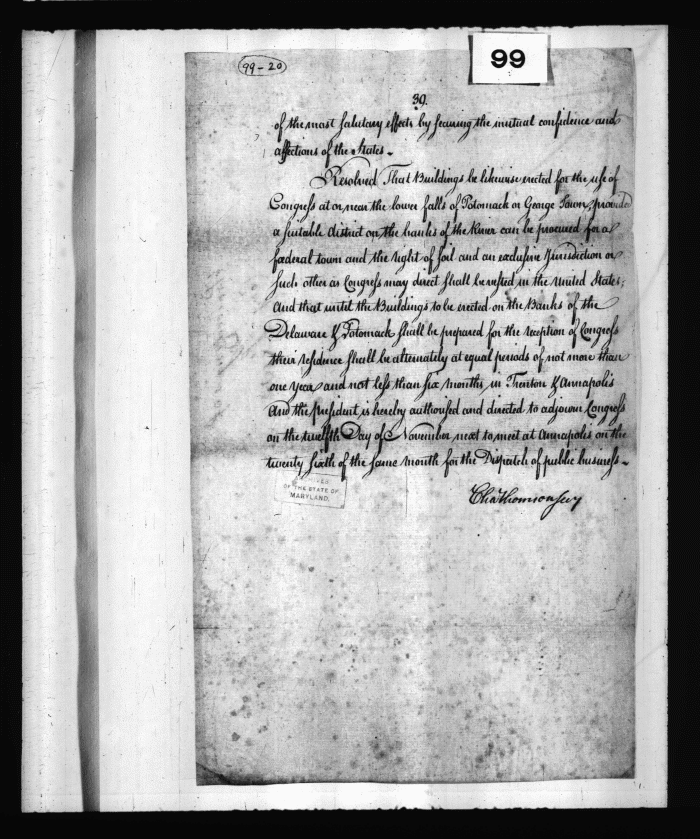 99-20
99
39.
of the most salutary effects by securing the mutual confidence and
affections of the States.
Resolved That Buildings be likewise erected for the use of
Congress at or near the lower falls of Potomack or George Town, provided
a suitable district on the banks of the River can be procured for a
fœderal town and the right of soil and an exclusive Jurisdiction or
such other as Congress may direct shall be vested in the United States;
And that until the Buildings to be erected on the Banks of the
Delaware & Potomack shall be prepared for the reception of Congress
their residence shall be alternately at equal periods of not more than
one Year and not less than six months in Trenton & Annapolis
And the president is hereby authorised and directed to adjourn Congress
on the twelfth Day of November next to meet at Annapolis on the
twenty sixth of the same month for the Dispatch of public business.
OF THE STATE OF
MARYLAND.
Cha Thomson Secy